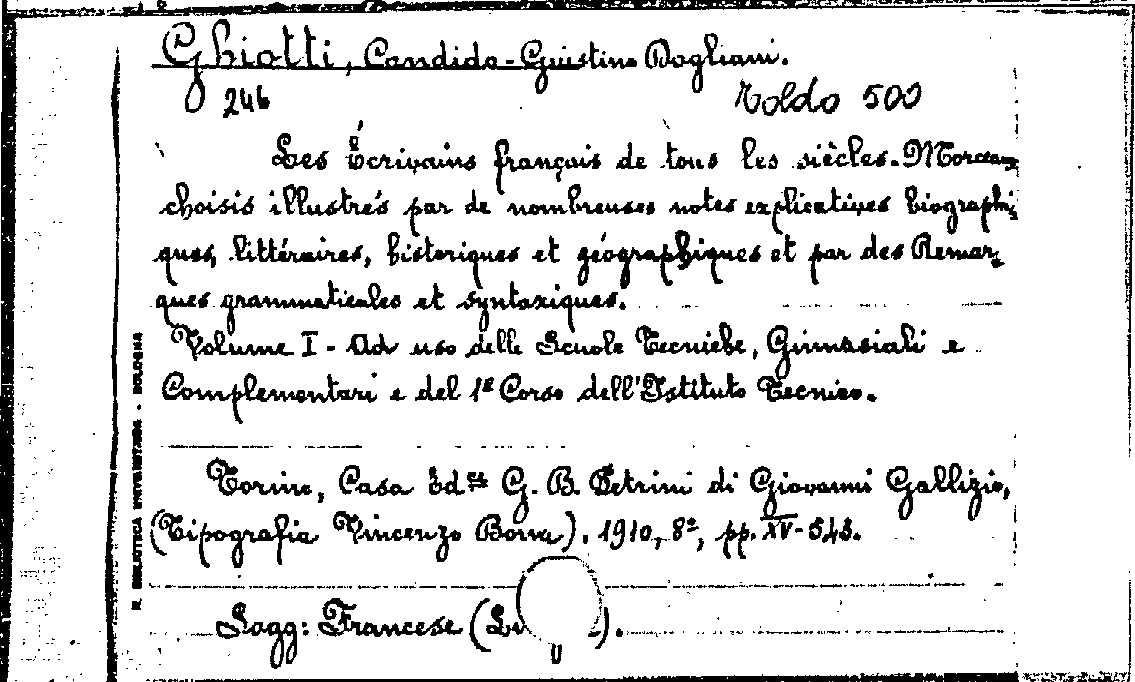 Ghiotti, Candido - Guistino Dogliani.
246 Roldo 500
Les Écrivains français de tous les siècles. - Morceaux
choisis illustrés par de nombreuses notes explicatives biographi-
ques, littéraires, historiques et géographiques et par des Remar-
ques grammaticales et syntaxiques.
Volume I - Ad uso delle Scuole Tecniche, Ginnasiali e
Complementari e del 1º Corso dell'Istituto Tecnico.
Torino, Casa Ed.ce G. B. Petrini di Giovanni Gallizio,
(Tipografia Vincenzo Bona). 1910, 8º, pp. XV-543.
Sogg: Francese
R. BIBLIOTECA UNIVERSITARIA - BOLOGNA